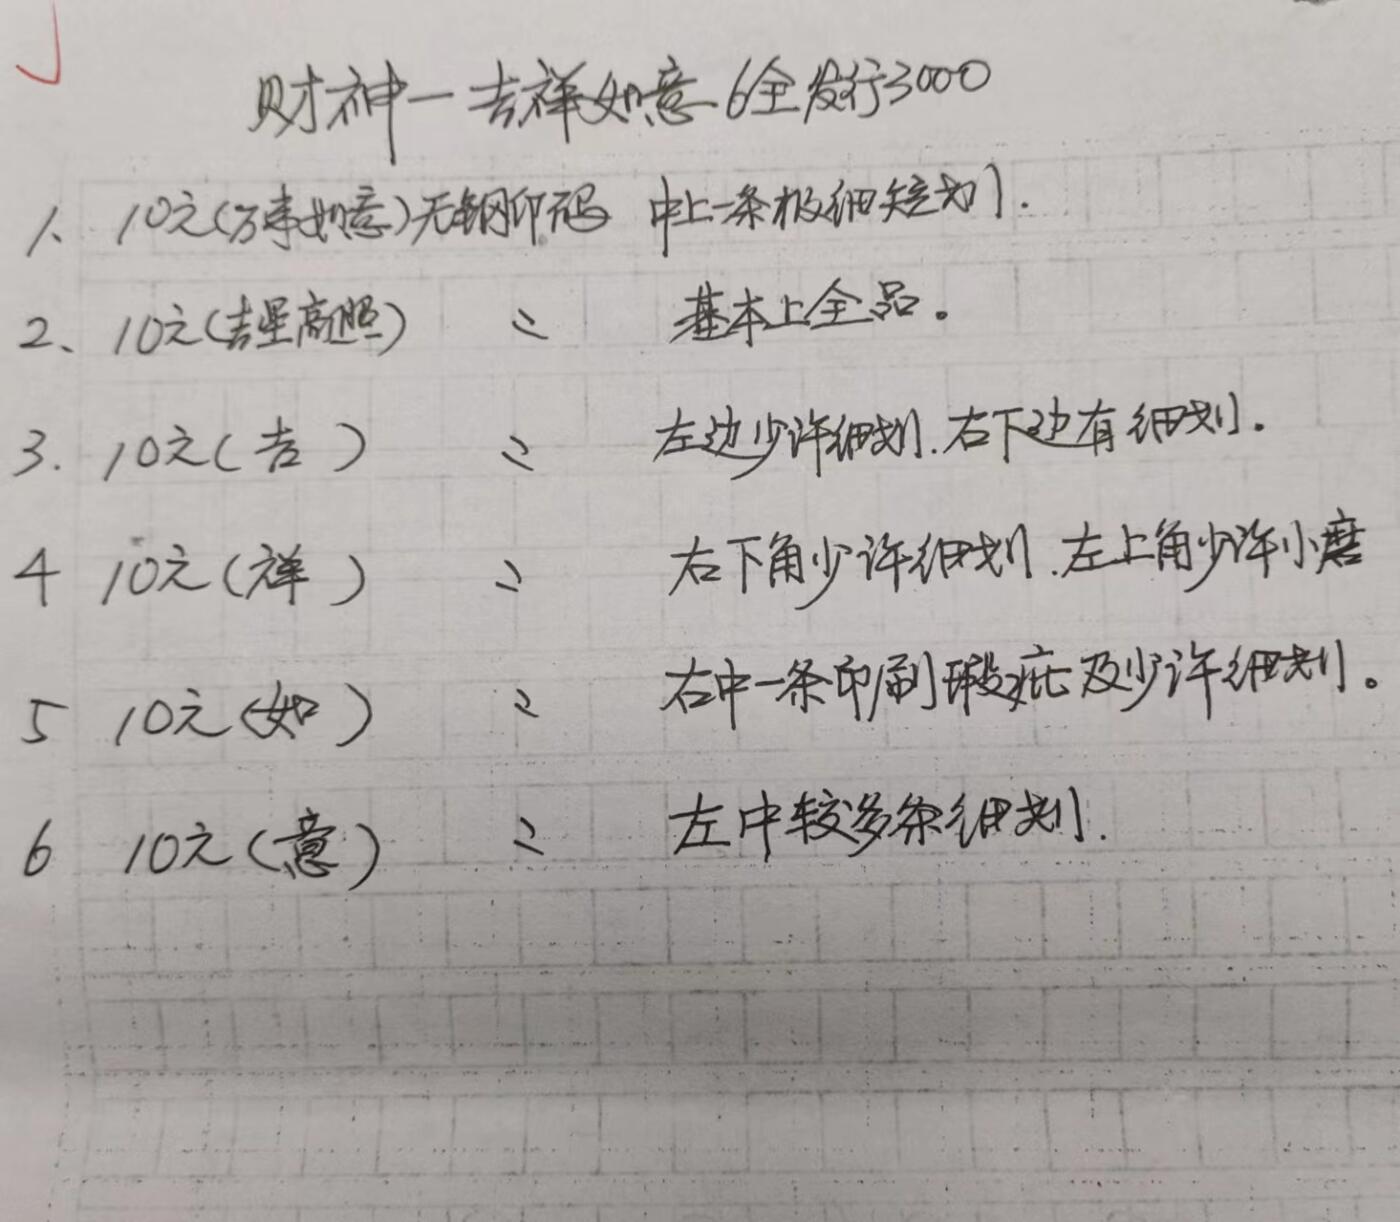 财神一吉祥如意6全发行3000
1、10元(万事如意)无钢印码 中上一条极细短划.
2、10元(吉星高照) 〃 基本上全品。
3. 10元(吉) 〃 左边少许细划.右下边有细划.
4 10元(祥) 〃 右下角少许细划.左上角少许小磨
5 10元(如) 〃 右中一条印刷瑕疵及少许细划。
6 10元(意) 〃 左中较多条细划.